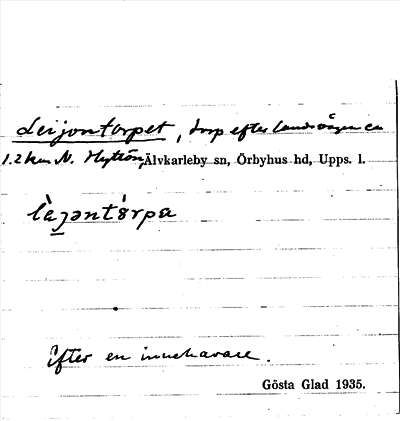 Leijontorpet, torp efter landsvägen ca
1.2 km N. Hyttön, Älvkarleby sn, Örbyhus hd, Upps. l.
Efter en innehavare.
Gösta Glad 1935.